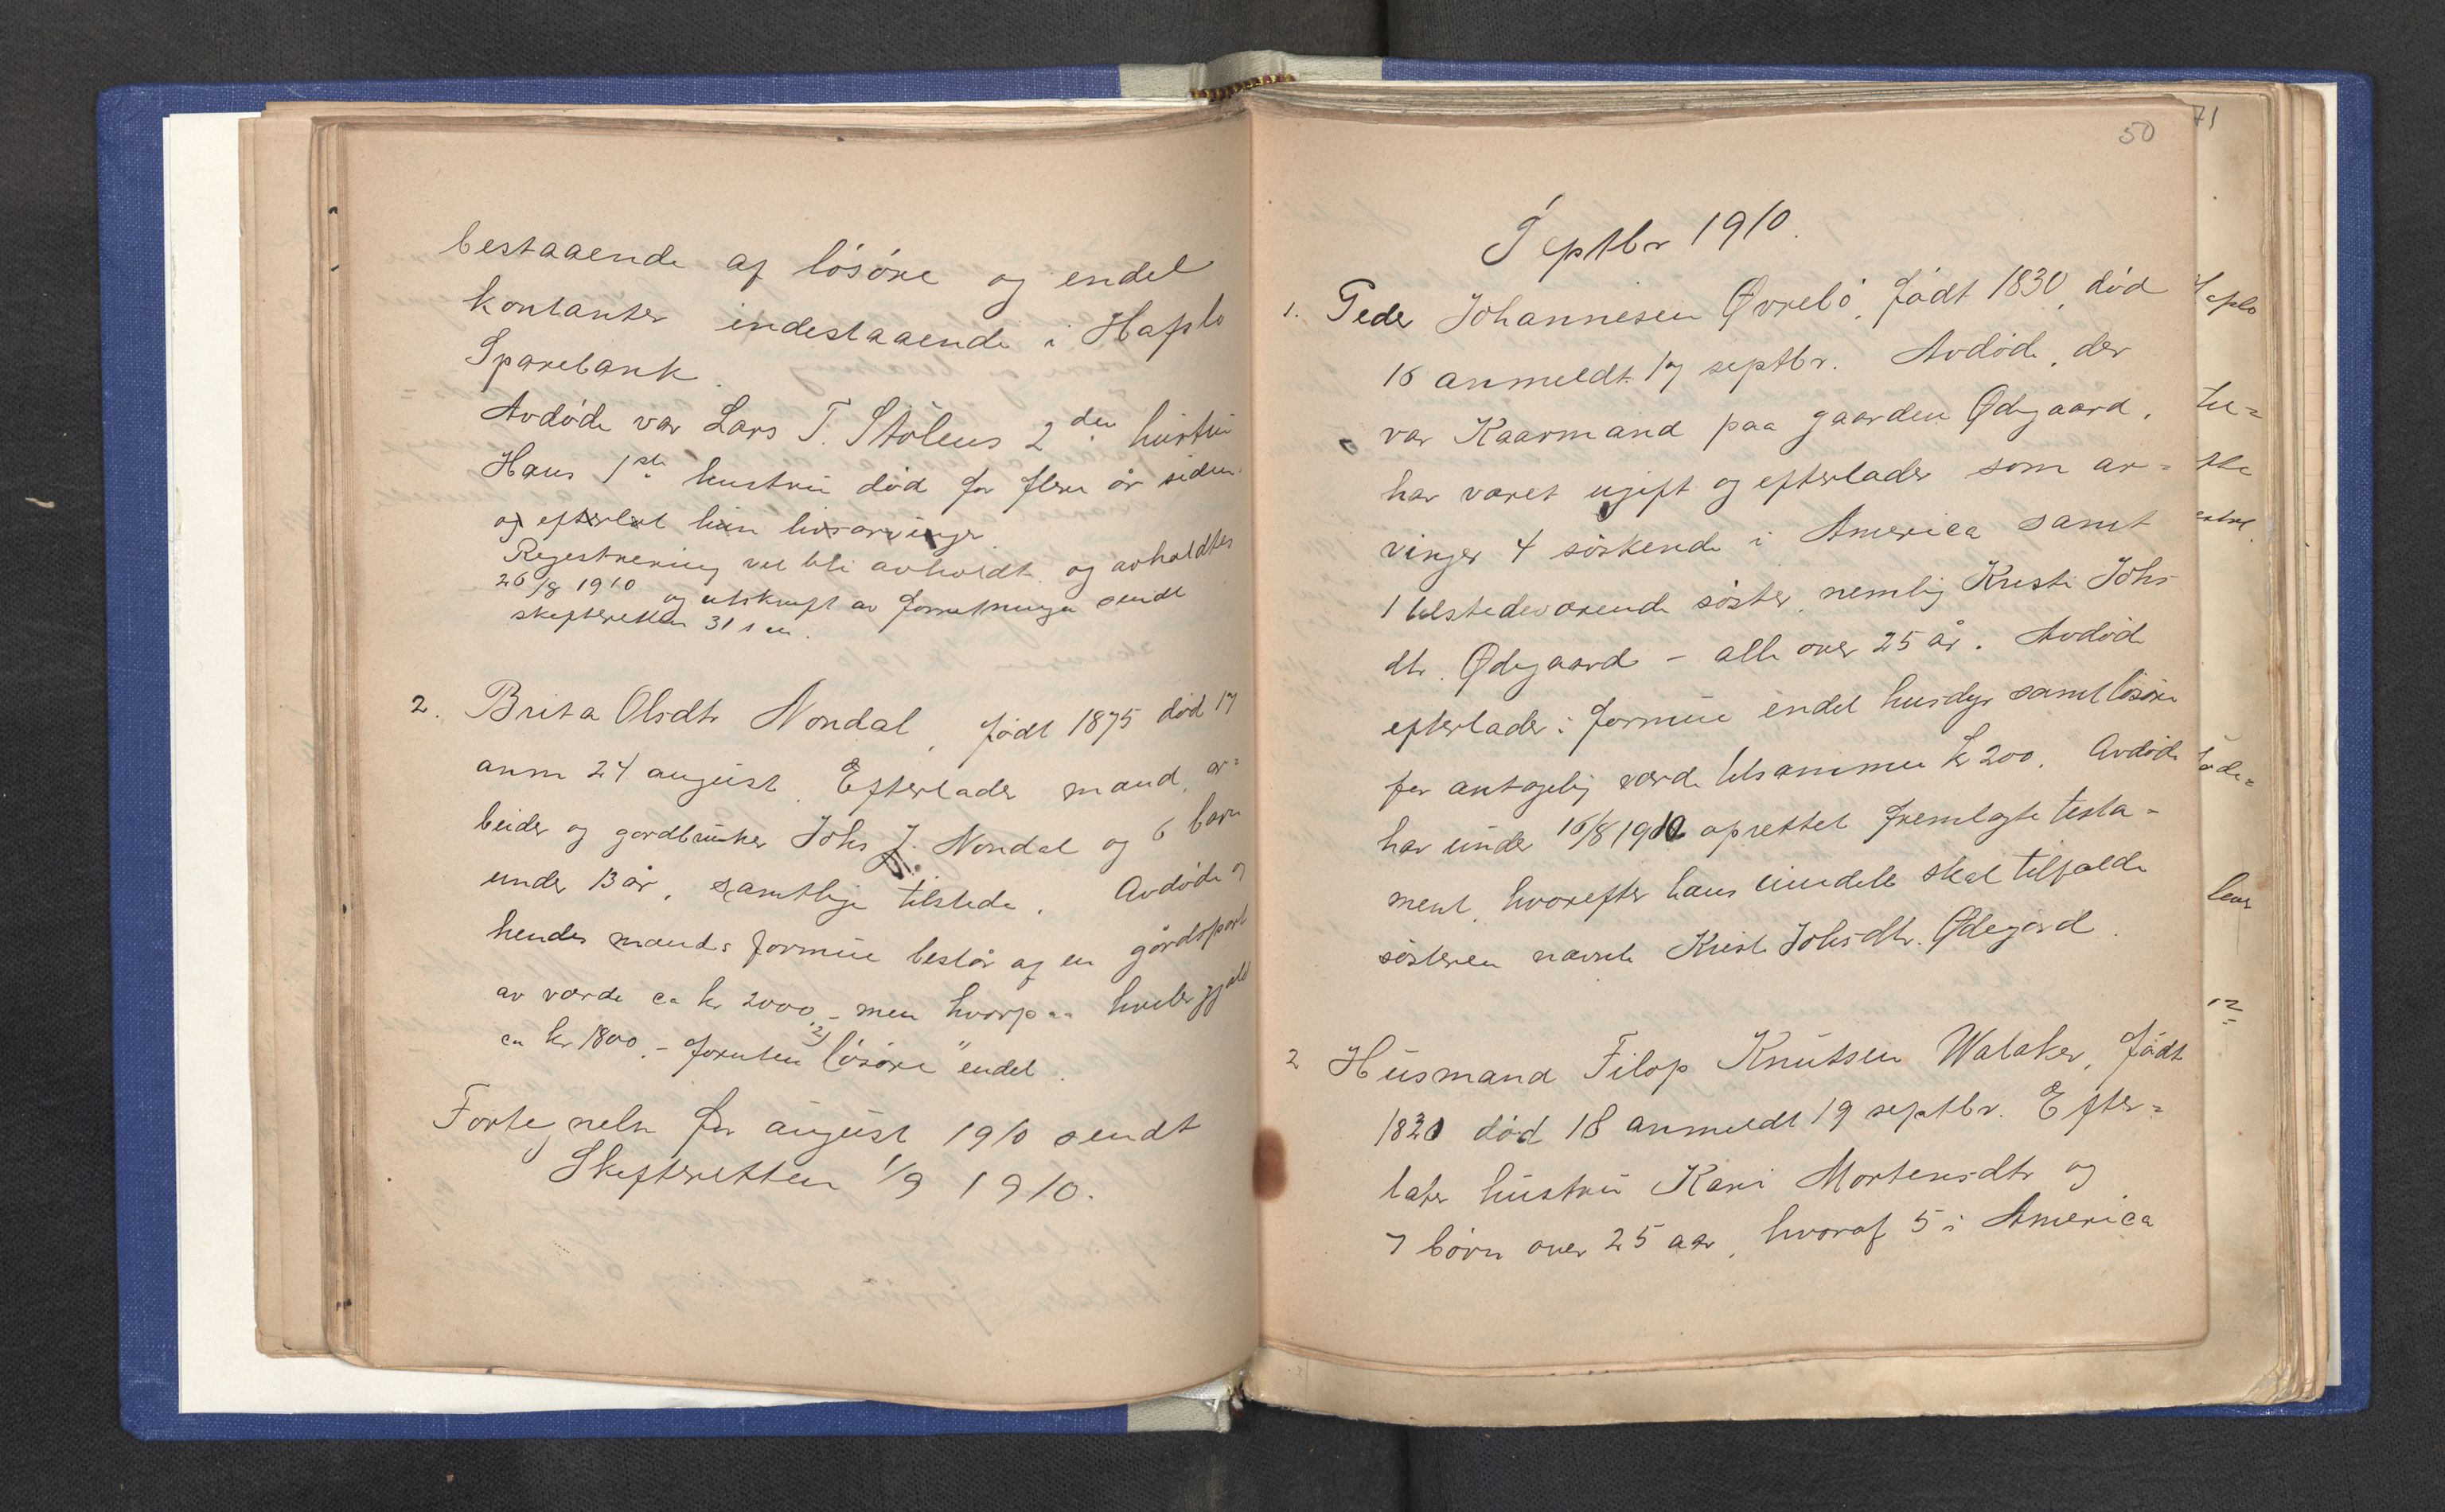 bestaaende af lösöre og endel
kontanter indestaaende i Hafslo
Sparebank.
Avdöde var Lars T. Stölens 2den hustru
Hans 1ste hustru död for flere år siden.
og efterlot hun livsarvinger
Registrering vil bli avholdt og avholdtes
26/8 1910 og utskrift av forretningen sendt
skifteretten 31 s m.
2. Brita Olsdtr Nondal, født 1875 død 17
anm 24 august. Efterlader mand, ar=
beider og gardbruker Johs J. Nondal og 6 barn
under 13 år, samtlige tilstede. Avdöde og
hendes mands formue består af en gårdspart
av værde ca kr 2000 - men hvorpaa hviler gjæld
ca kr 1800. - foruten 2) lösöre " endel.
Fortegnelse for august 1910 sendt
Skifteretten 1/9 1910.
50
Septbr 1910.
1. Peder Johannesen Øvrebö, født 1830, død
16 anmeldt 17 septbr. Avdöde, der
var Kaarmand paa gaarden Ødegaard,
har været ugift og efterlader som ar=
vinger 4 söskende i America samt
1 tilstedeværende söster, nemlig Kristi Johs
dtr. Ødegaard - alle over 25 år. Avdöde
efterlader i formue endel husdyr samt lösöre
for antagelig værde tilsammen kr 200. Avdöde
har under 16/8 1910 oprettet fremlagte testa=
ment, hvorefter hans midele skal tilfalde
sösteren nævnte Kristi Johsdtr. Ødegård.
2 Husmand Filop Knutsen Walaker, født
1821 död 18 anmeldt 19 septbr. Efter=
later hustru Kari Mortensdtr og
7 börn over 25 aar, hvoraf 5 i America
71